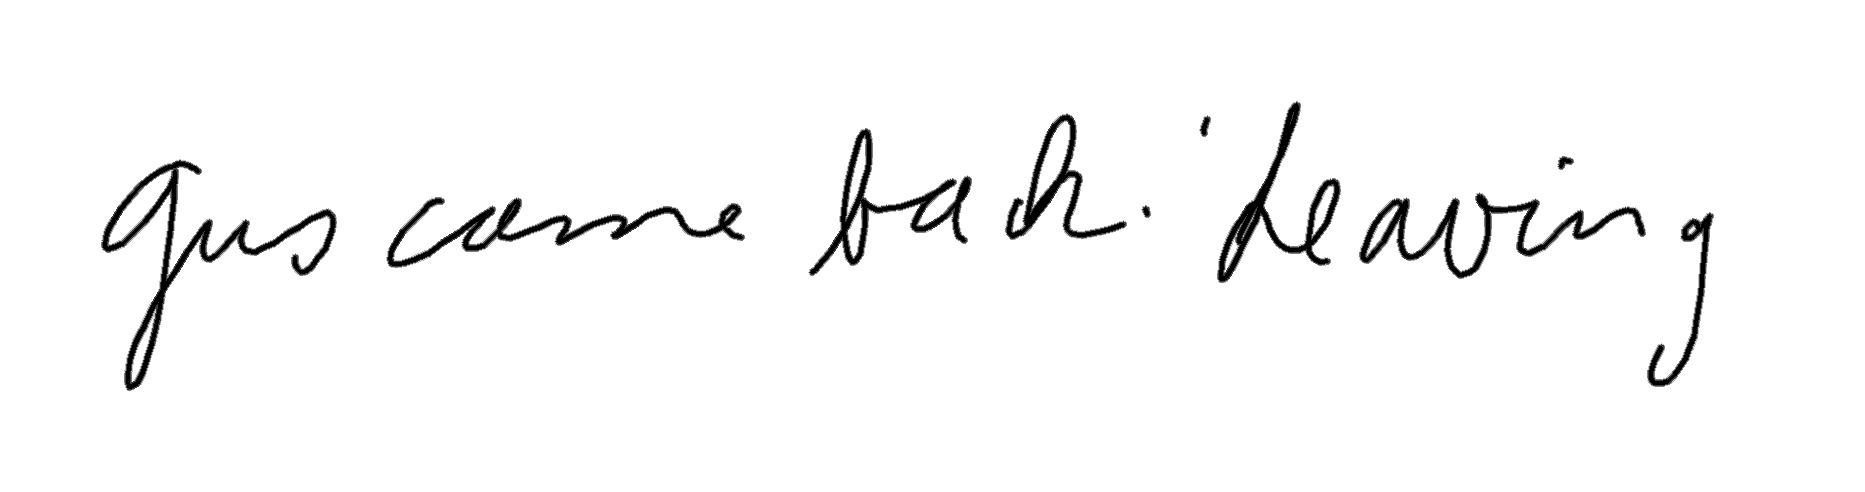 Gus came back. 'Leaving